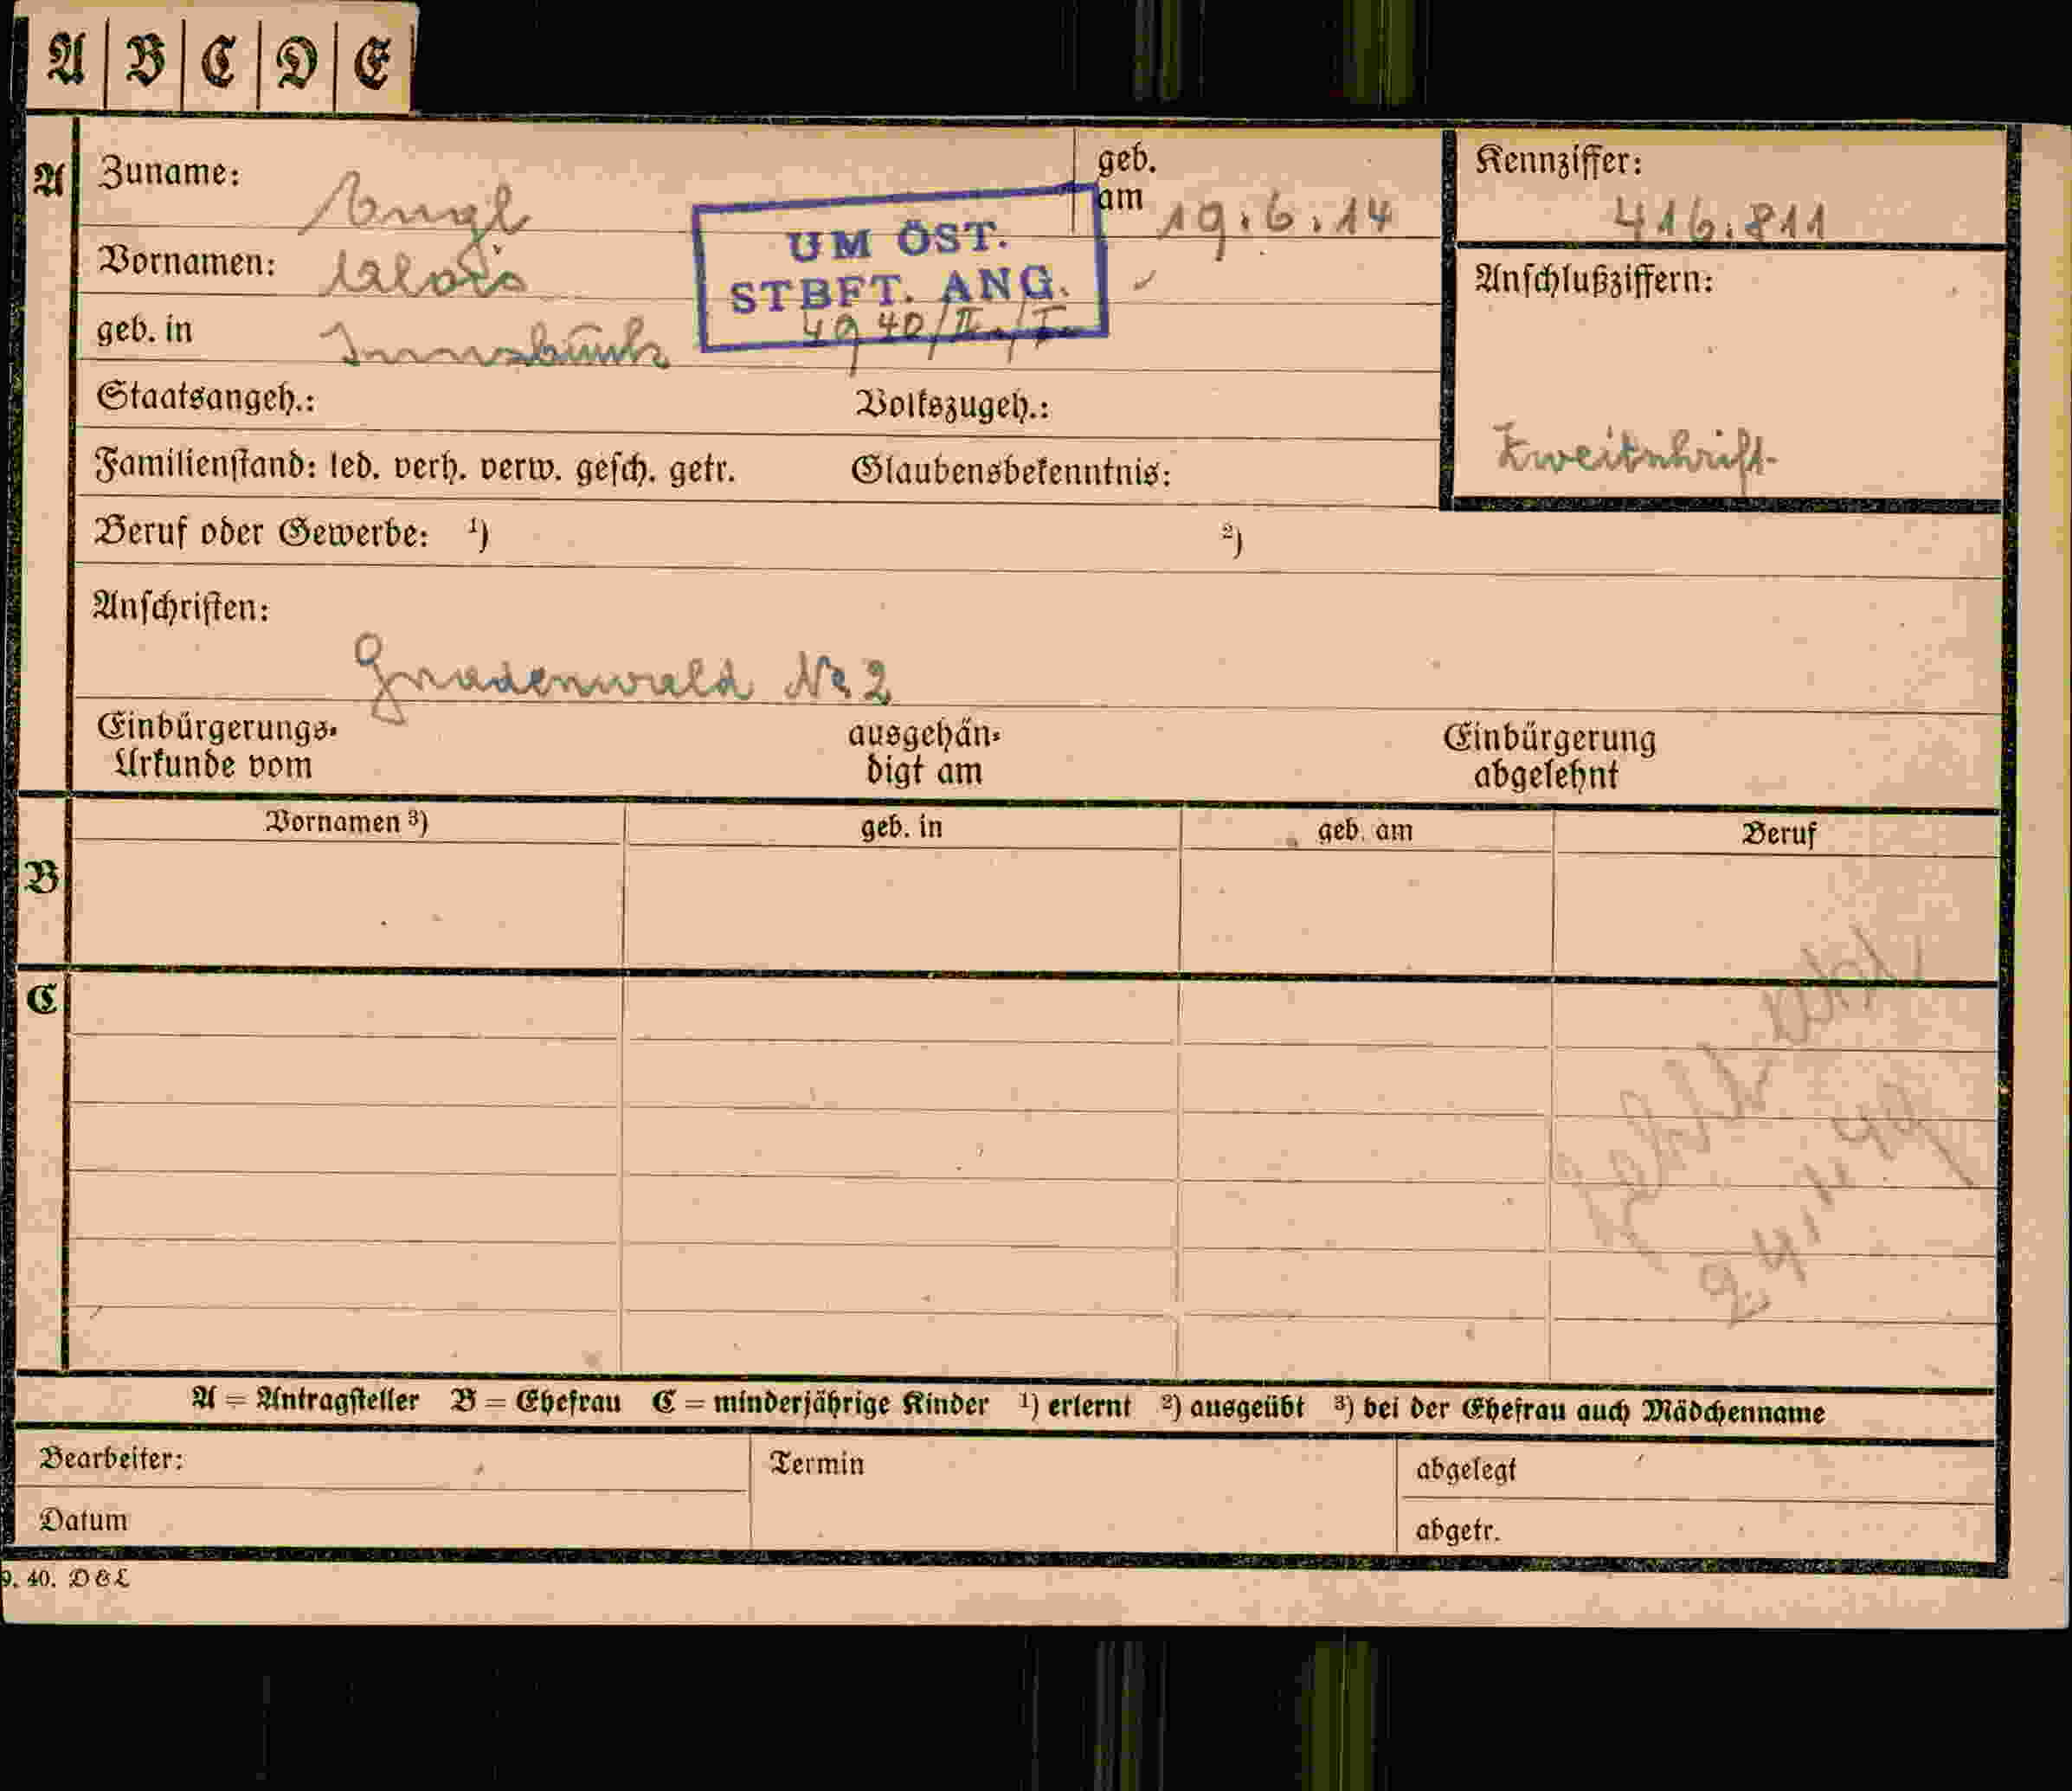 A B C D E
A Zuname: Engl geb. am 19.6.14 Kennziffer: 416.811
UM ÖST.
STBFT. ANG.
4940/II./I.
Vornamen: Alois
Anschlußziffern:
geb. in Innsbruck
Staatsangeh.: Volkszugeh.:
Zweitschrift
Familienstand: led. verh. verw. gesch. getr. Glaubensbekenntnis:
Beruf oder Gewerbe: ¹) ²)
Anschriften:
Gnadenwald No 2
Einbürgerungs- ausgehän- Einbürgerung
Urkunde vom digt am abgelehnt
Vornamen ³) geb. in geb. am Beruf
B
C
fehlt
24.11.49
A = Antragsteller B = Ehefrau C = minderjährige Kinder ¹) erlernt ²) ausgeübt ³) bei der Ehefrau auch Mädchenname
Bearbeiter: Termin abgelegt
Datum abgetr.
9. 40. D & L